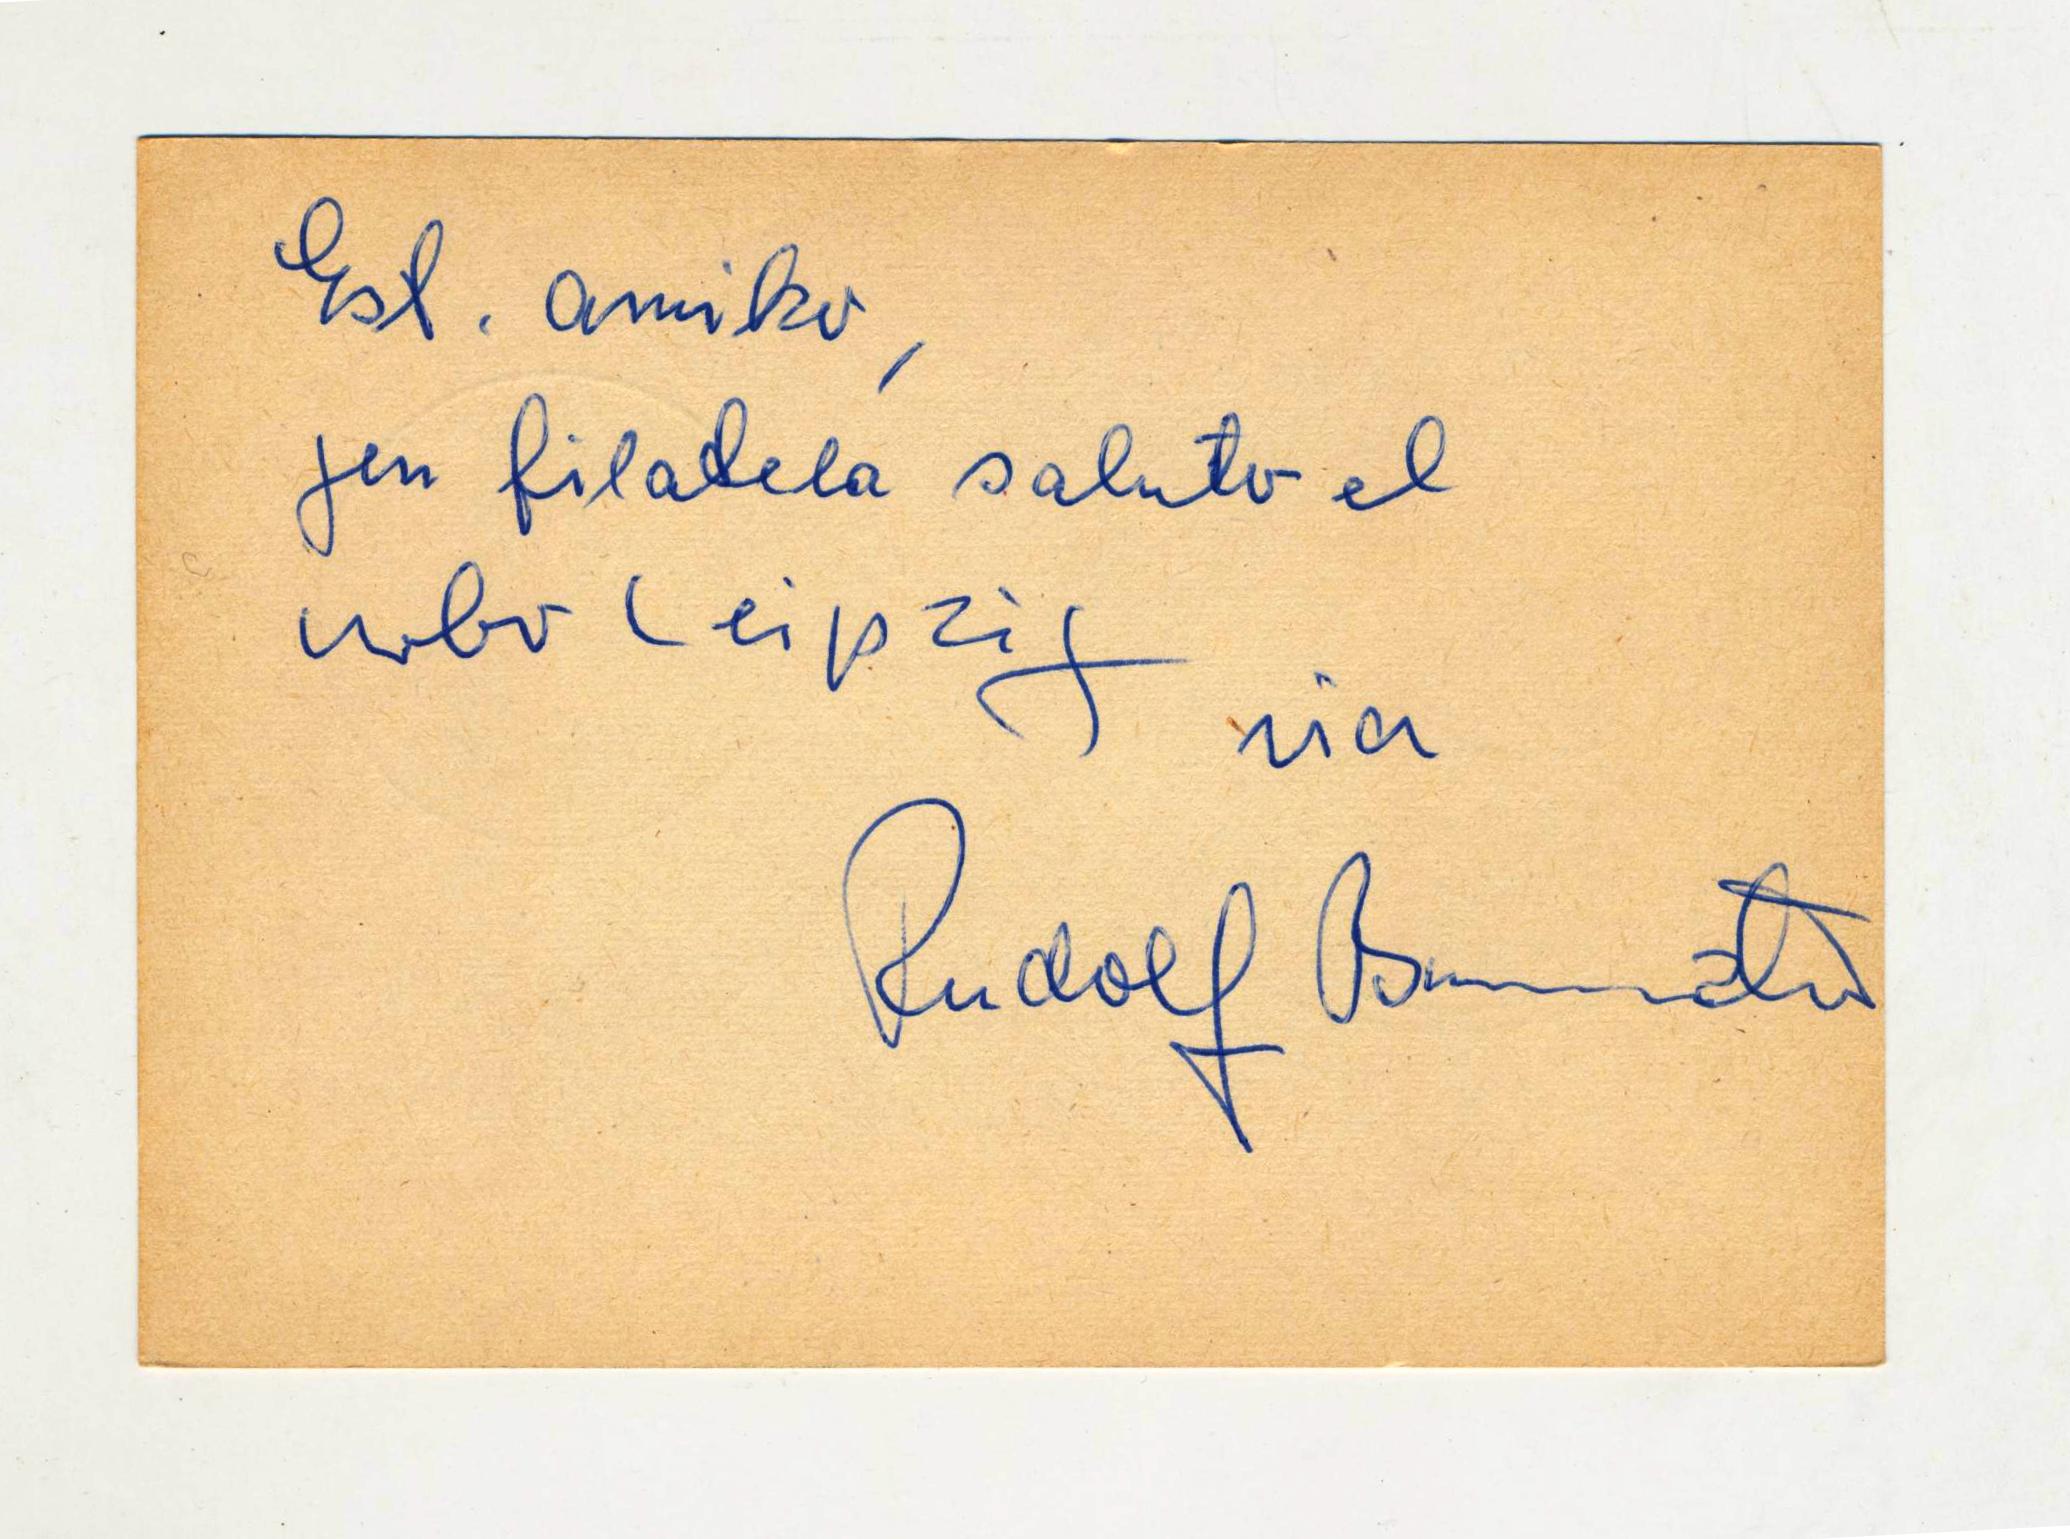 Est. amiko,
jen filatela saluto el
urbo Leipzig
via
Rudolf